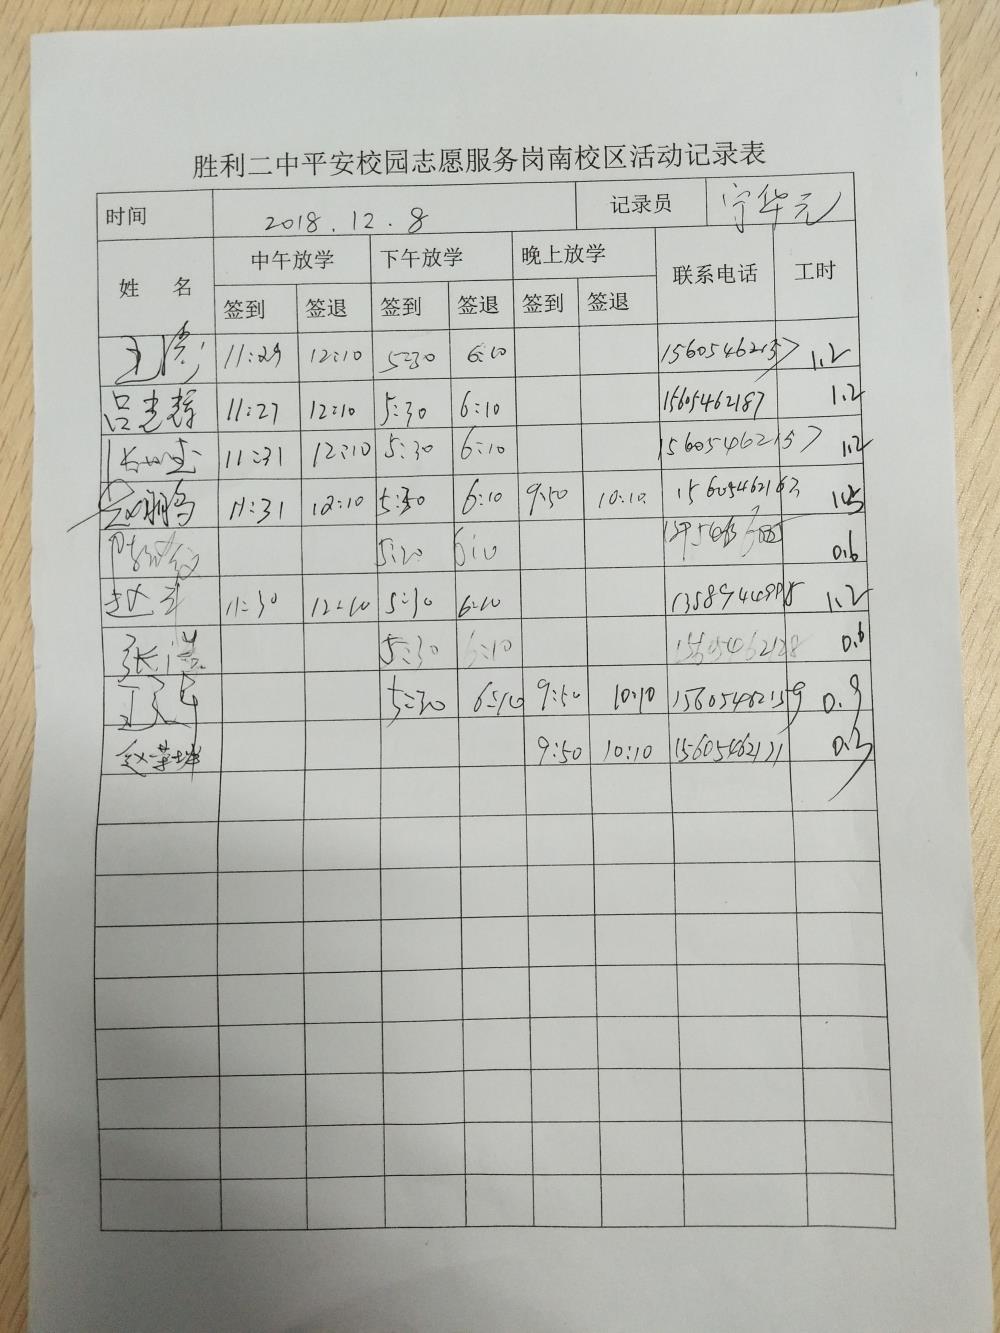 胜利二中平安校园志愿服务岗南校区活动记录表
时间 2018.12.8 记录员 宁华元
姓 名 中午放学 下午放学 晚上放学 联系电话 工时
签到 签退 签到 签退 签到 签退
11:29 12:10 5:30 6:10 1.2
吕志辉 11:27 12:10 5:30 6:10 15605462187 1.2
11:31 12:10 5:30 6:10 1.2
赵鹏 11:31 12:10 5:30 6:10 9:50 10:10 15605462163 1.5
6:10 0.6
11:30 12:10 5:30 6:10 1.2
张浩 5:30 6:10 15605462128 0.6
5:30 6:10 9:50 10:10 15605462159 0.9
赵荣坤 9:50 10:10 15605462121 0.3